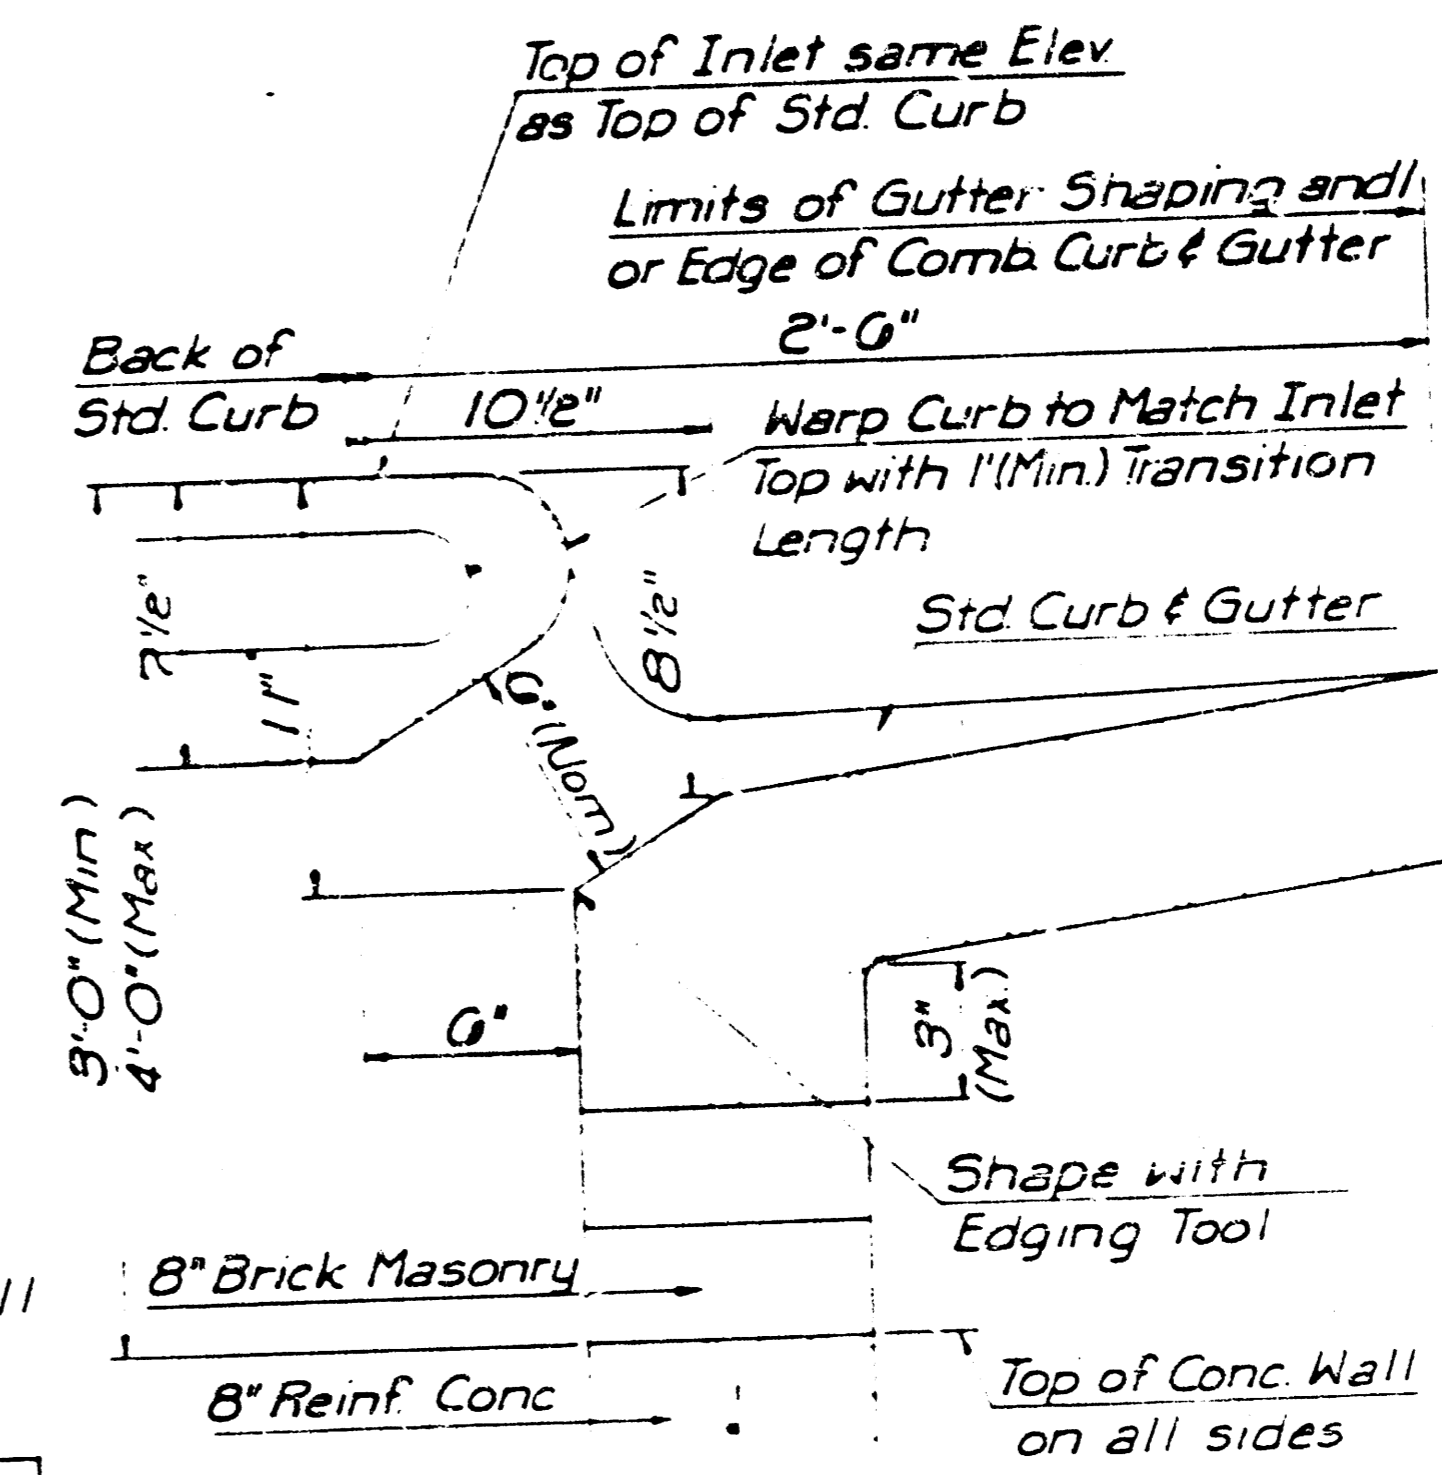 Top of Inlet same Elev.
as Top of Std. Curb
Limits of Gutter Shaping and/
or Edge of Comb. Curb & Gutter
2'-6"
Back of
Std. Curb
10 1/2"
Warp Curb to Match Inlet
Top with 1'(Min.) Transition
Length
8 1/2"
Std. Curb & Gutter
11"
6" (Nom.)
3'-0" (Min)
4'-0" (Max)
6"
3"
(Max.)
Shape with
Edging Tool
8" Brick Masonry
8" Reinf. Conc
Top of Conc. Wall
on all sides